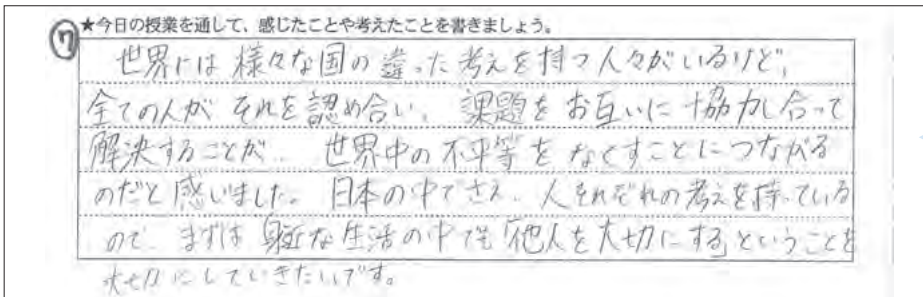 ⑦ ★今日の授業を通して、感じたことや考えたことを書きましょう。
世界には様々な国の違った考えを持つ人々がいるけど、
全ての人がそれを認め合い、課題をお互いに協力し合って
解決することが、世界中の不平等をなくすことにつながる
のだと感じました。日本の中でさえ、人それぞれの考えを持っている
ので、まずは身近な生活の中でも「他人を大切にする」ということを
大切にしていきたいです。